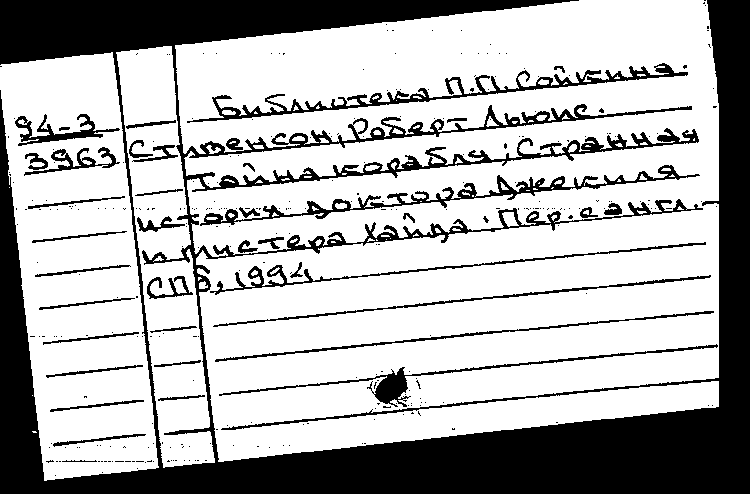 Библиотека П.П. Сойкина.
94-3
3963
Стивенсон, Роберт Льюис.
Тайна корабля; Странная
история доктора Джекиля
и мистера Хайда: Пер. с англ.-
СПб, 1994.